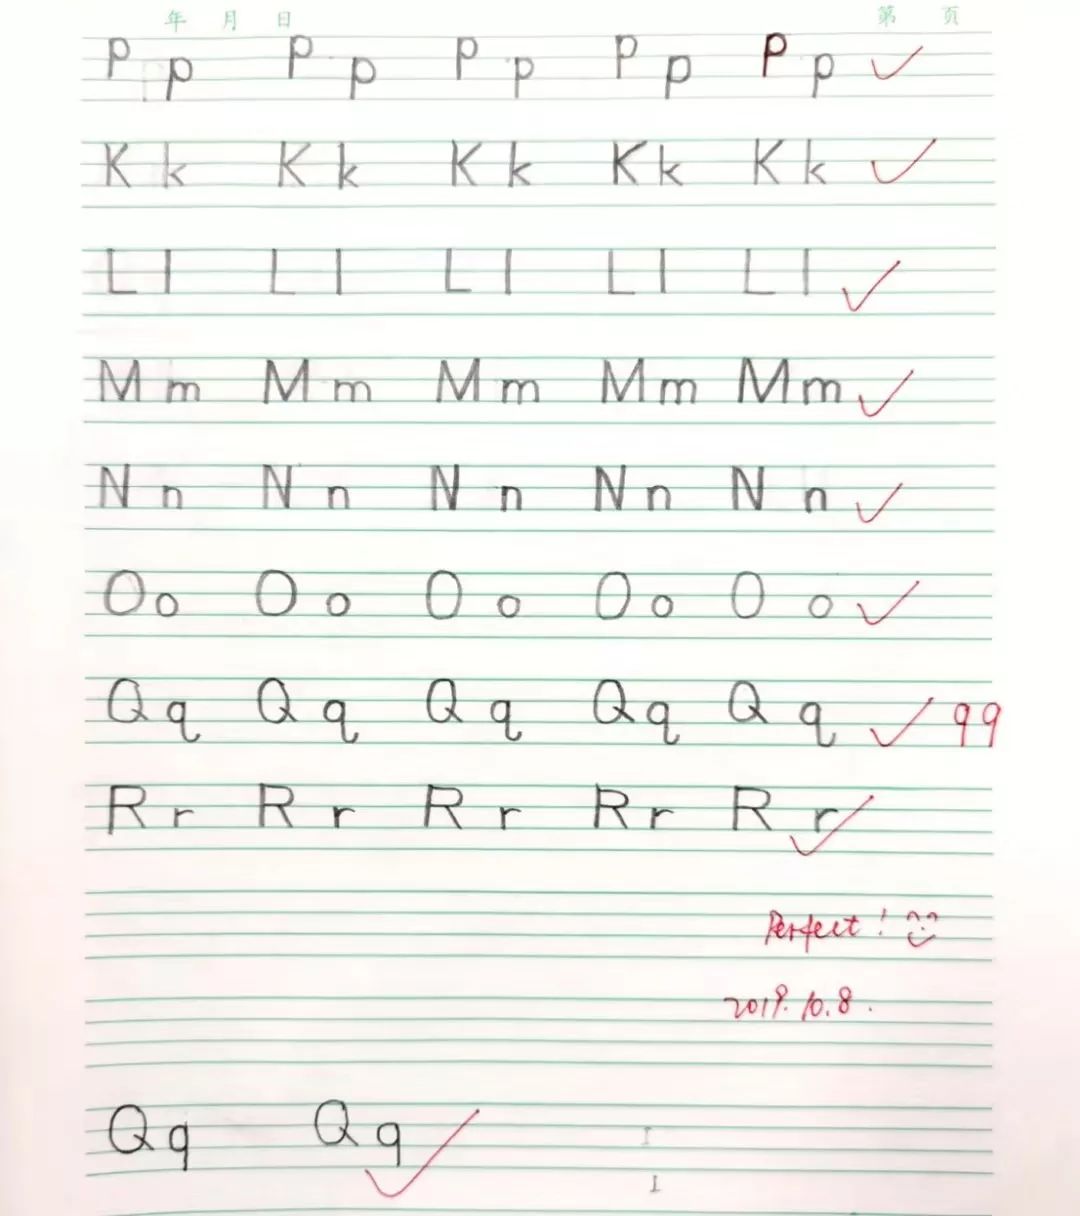 年 月 日 第 页
P p P p P p P p P p
K k K k K k K k K k
L l L l L l L l L l
M m M m M m M m M m
N n N n N n N n N n
O o O o O o O o O o
Q q Q q Q q Q q Q q 99
R r R r R r R r R r
Perfect!
2019.10.8.
Q q Q q
I
I